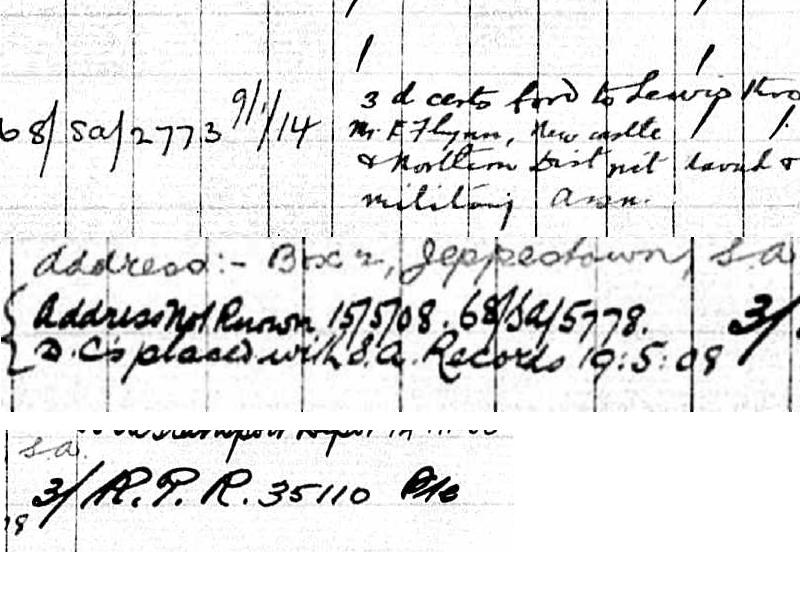 68/SA/2773 9/1/14
3 d certs ford to Lewis thro
Mr. E Flynn, Newcastle
& Northern Dist naval &
military Assn.
Address:- Box 2, Jeppestown, S.A
Address Not Known 15/5/08. 68/SA/5778. 3/
D.C's placed with S.A. Records 19:5:08
S.A.
3/ R.P.R. 35110 Pte